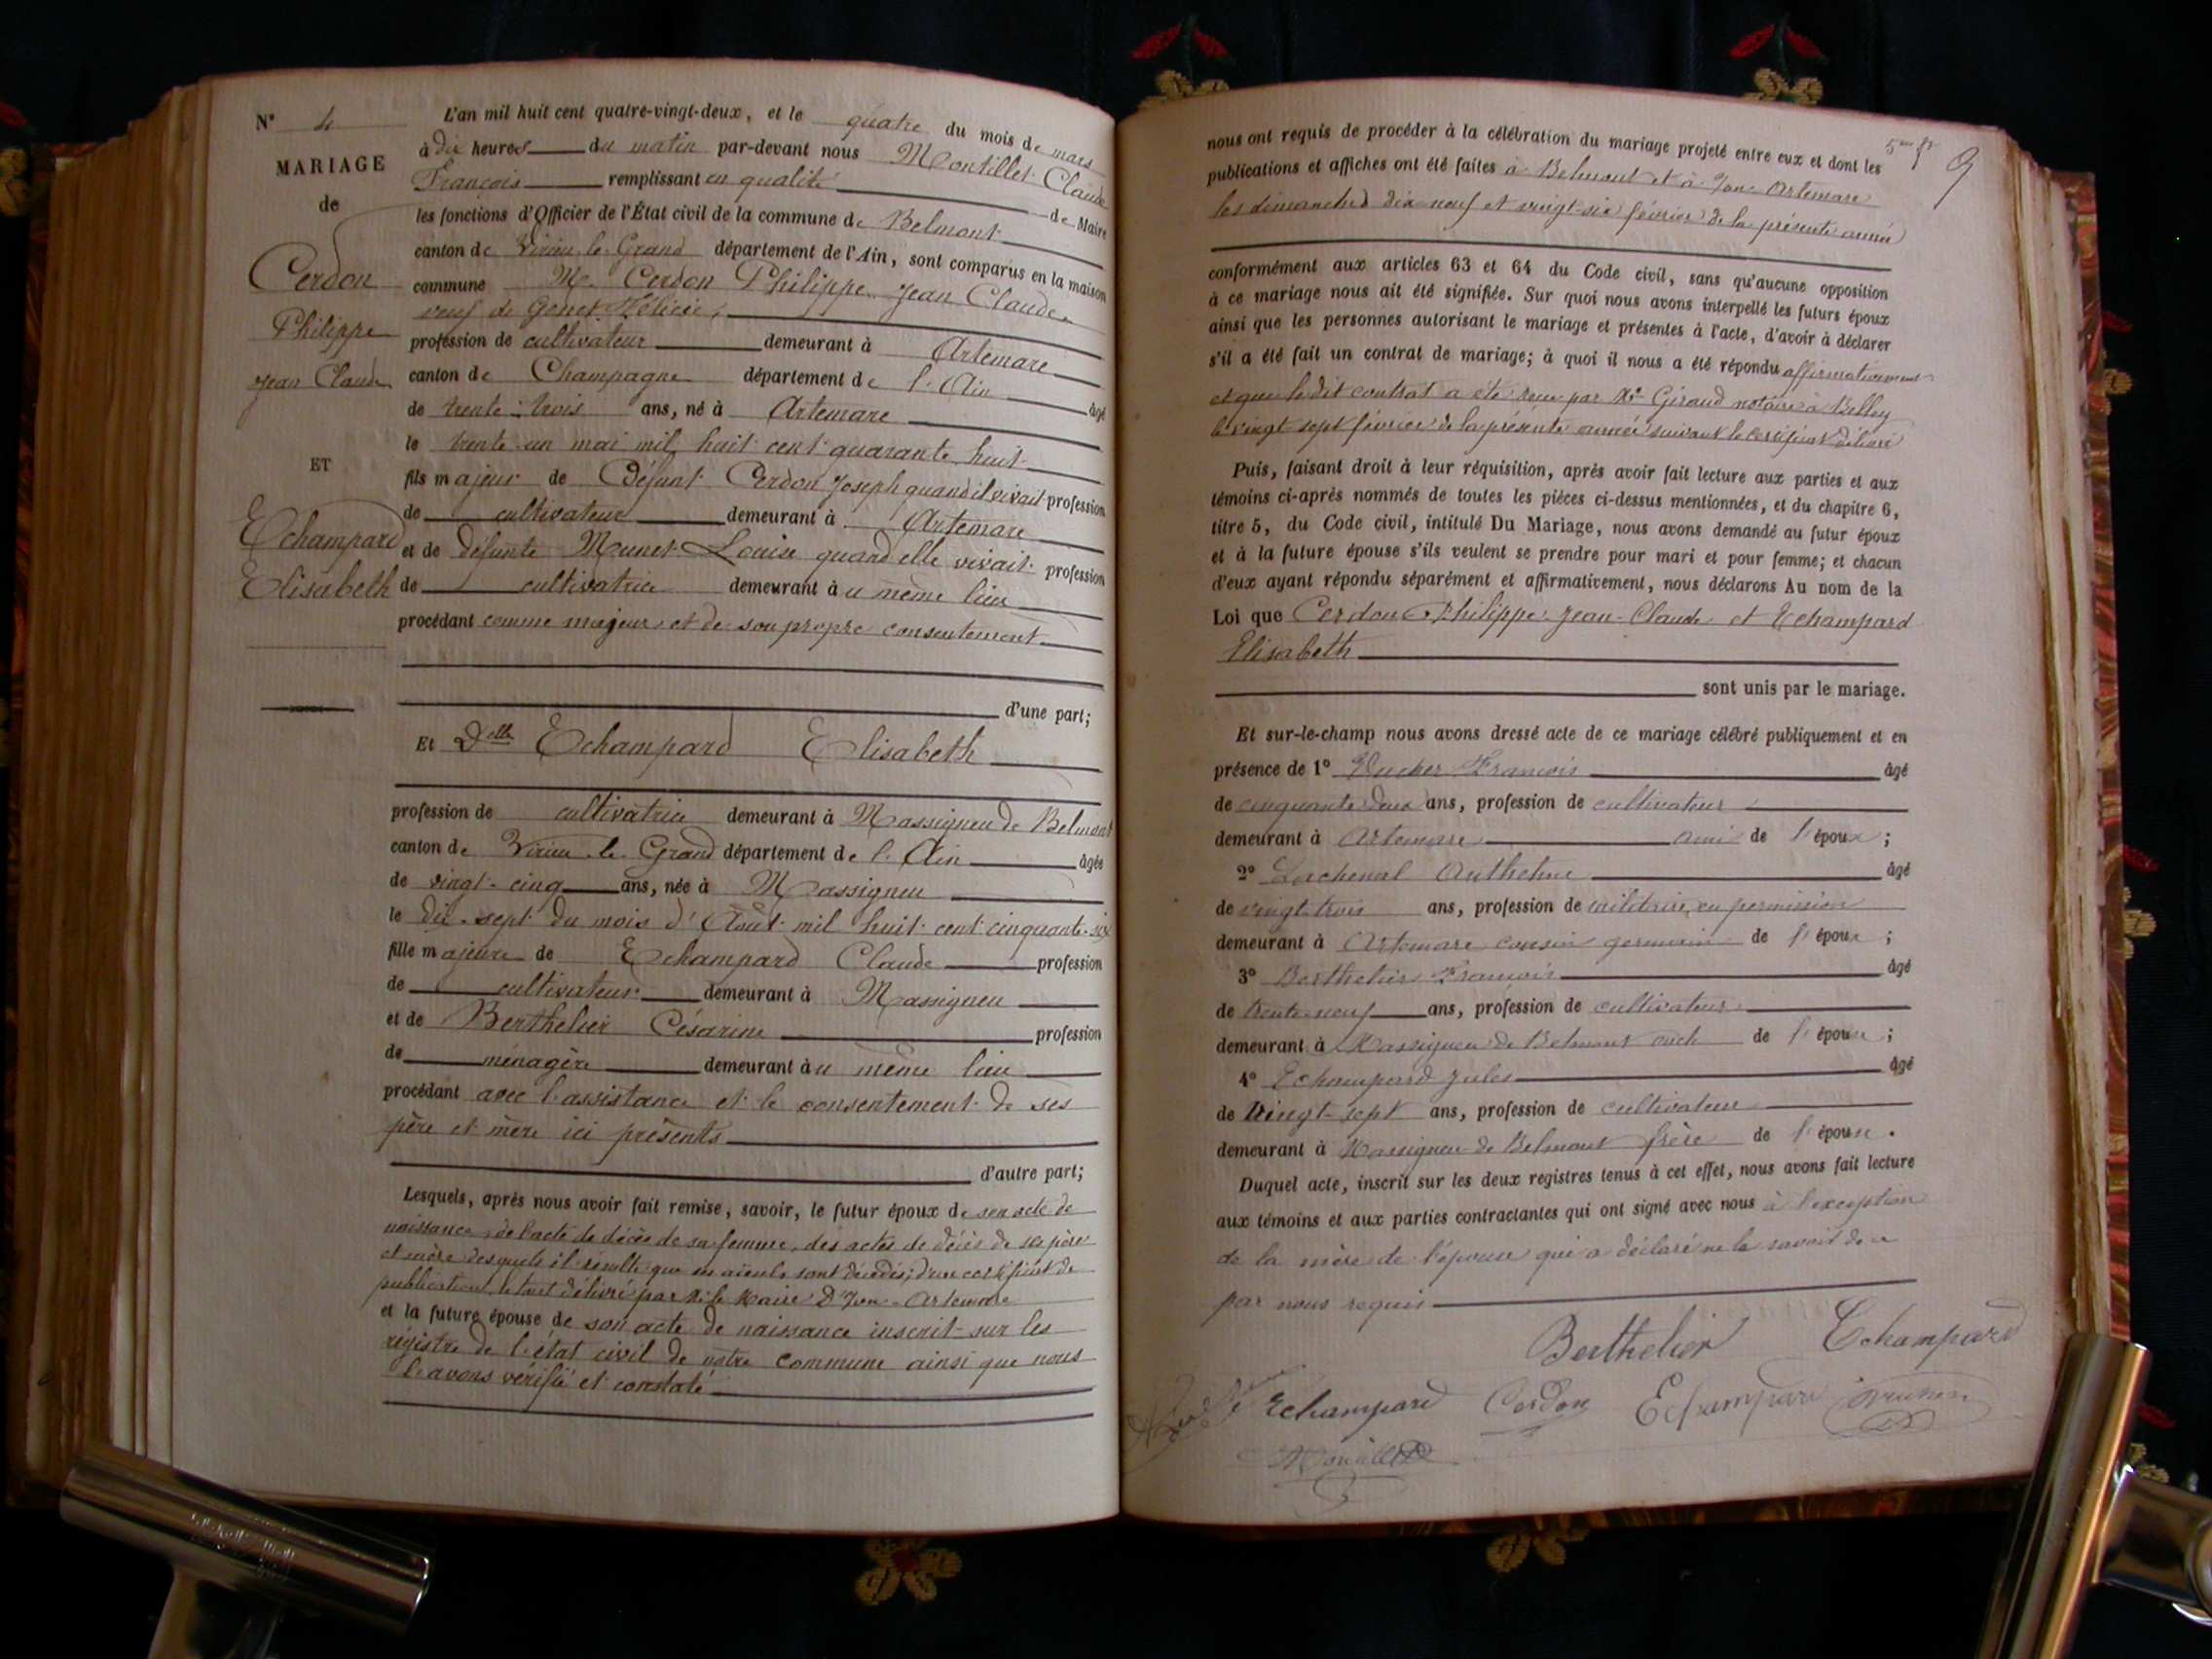 N° 4
MARIAGE
de
Cerdon
Philippe
Jean Claude
ET
Echampard
Elisabeth
L'an mil huit cent quatre-vingt-deux, et le quatre du mois de mars
à dix heures du matin par-devant nous Montillet Claude
François remplissant en qualité de Maire
les fonctions d'Officier de l'État civil de la commune de Belmont
canton de Virieu-le-Grand département de l'Ain, sont comparus en la maison
commune Mr Cerdon Philippe Jean Claude
veuf de Genet
profession de cultivateur demeurant à Artemare
canton de Champagne département de l'Ain âgé
de trente-trois ans, né à Artemare
le trente-un mai mil huit cent quarante huit
fils majeur de Défunt Cerdon Joseph quand il vivait profession
de cultivateur demeurant à Artemare
et de défunte Munet Louise quand elle vivait profession
de cultivatrice demeurant au même lieu
procédant comme majeur et de son propre consentement
d'une part;
Et Delle Echampard Elisabeth
profession de cultivatrice demeurant à Massigneu de Belmont
canton de Virieu-le-Grand département de l'Ain âgée
de vingt-cinq ans, née à Massigneu
le dix-sept du mois d'Août mil huit cent cinquante-six
fille majeure de Echampard Claude profession
de cultivateur demeurant à Massigneu
et de Berthelier Césarine profession
de ménagère demeurant au même lieu
procédant avec l'assistance et le consentement de ses
père et mère ici présents
d'autre part;
Lesquels, après nous avoir fait remise, savoir, le futur époux de son acte de
naissance, de l'acte de décès de sa femme, des actes de décès de ses père
et mère desquels il résulte que ses aïeuls sont décédés; d'un certificat de
publication, le tout délivré par Mr le Maire d'Yon-Artemare
et la future épouse de son acte de naissance inscrit sur les
régistre de l'état civil de notre commune ainsi que nous
l'avons vérifié et constaté
9
nous ont requis de procéder à la célébration du mariage projeté entre eux et dont les
publications et affiches ont été faites à Belmont et à Yon-Artemare
les dimanches dix-neuf et vingt-six février de la présente année
conformément aux articles 63 et 64 du Code civil, sans qu'aucune opposition
à ce mariage nous ait été signifiée. Sur quoi nous avons interpellé les futurs époux
ainsi que les personnes autorisant le mariage et présentes à l'acte, d'avoir à déclarer
s'il a été fait un contrat de mariage; à quoi il nous a été répondu affirmativement
et que le dit contrat a été reçu par Me Giraud notaire à Belley
le vingt sept février de la présente année suivant le certificat délivré
Puis, faisant droit à leur réquisition, après avoir fait lecture aux parties et aux
témoins ci-après nommés de toutes les pièces ci-dessus mentionnées, et du chapitre 6,
titre 5, du Code civil, intitulé Du Mariage, nous avons demandé au futur époux
et à la future épouse s'ils veulent se prendre pour mari et pour femme; et chacun
d'eux ayant répondu séparément et affirmativement, nous déclarons Au nom de la
Loi que Cerdon Philippe Jean-Claude et Echampard
Elisabeth
sont unis par le mariage.
Et sur-le-champ nous avons dressé acte de ce mariage célébré publiquement et en
présence de 1° François âgé
de cinquante-deux ans, profession de cultivateur
demeurant à Artemare ami de l'époux;
2° Lachenal Anthelme âgé
de vingt-trois ans, profession de militaire en permission
demeurant à Artemare cousin germain de l'époux;
3° Berthelier François âgé
de trente-neuf ans, profession de cultivateur
demeurant à Massigneu de Belmont oncle de l'épouse;
4° Echampard Jules âgé
de vingt-sept ans, profession de cultivateur
demeurant à Massigneu de Belmont frère de l'épouse.
Duquel acte, inscrit sur les deux registres tenus à cet effet, nous avons fait lecture
aux témoins et aux parties contractantes qui ont signé avec nous à l'exception
de la mère de l'épouse qui a déclaré ne le savoir de ce
par nous requis
Berthelier Echampard
Echampard Cerdon Echampard
Montillet